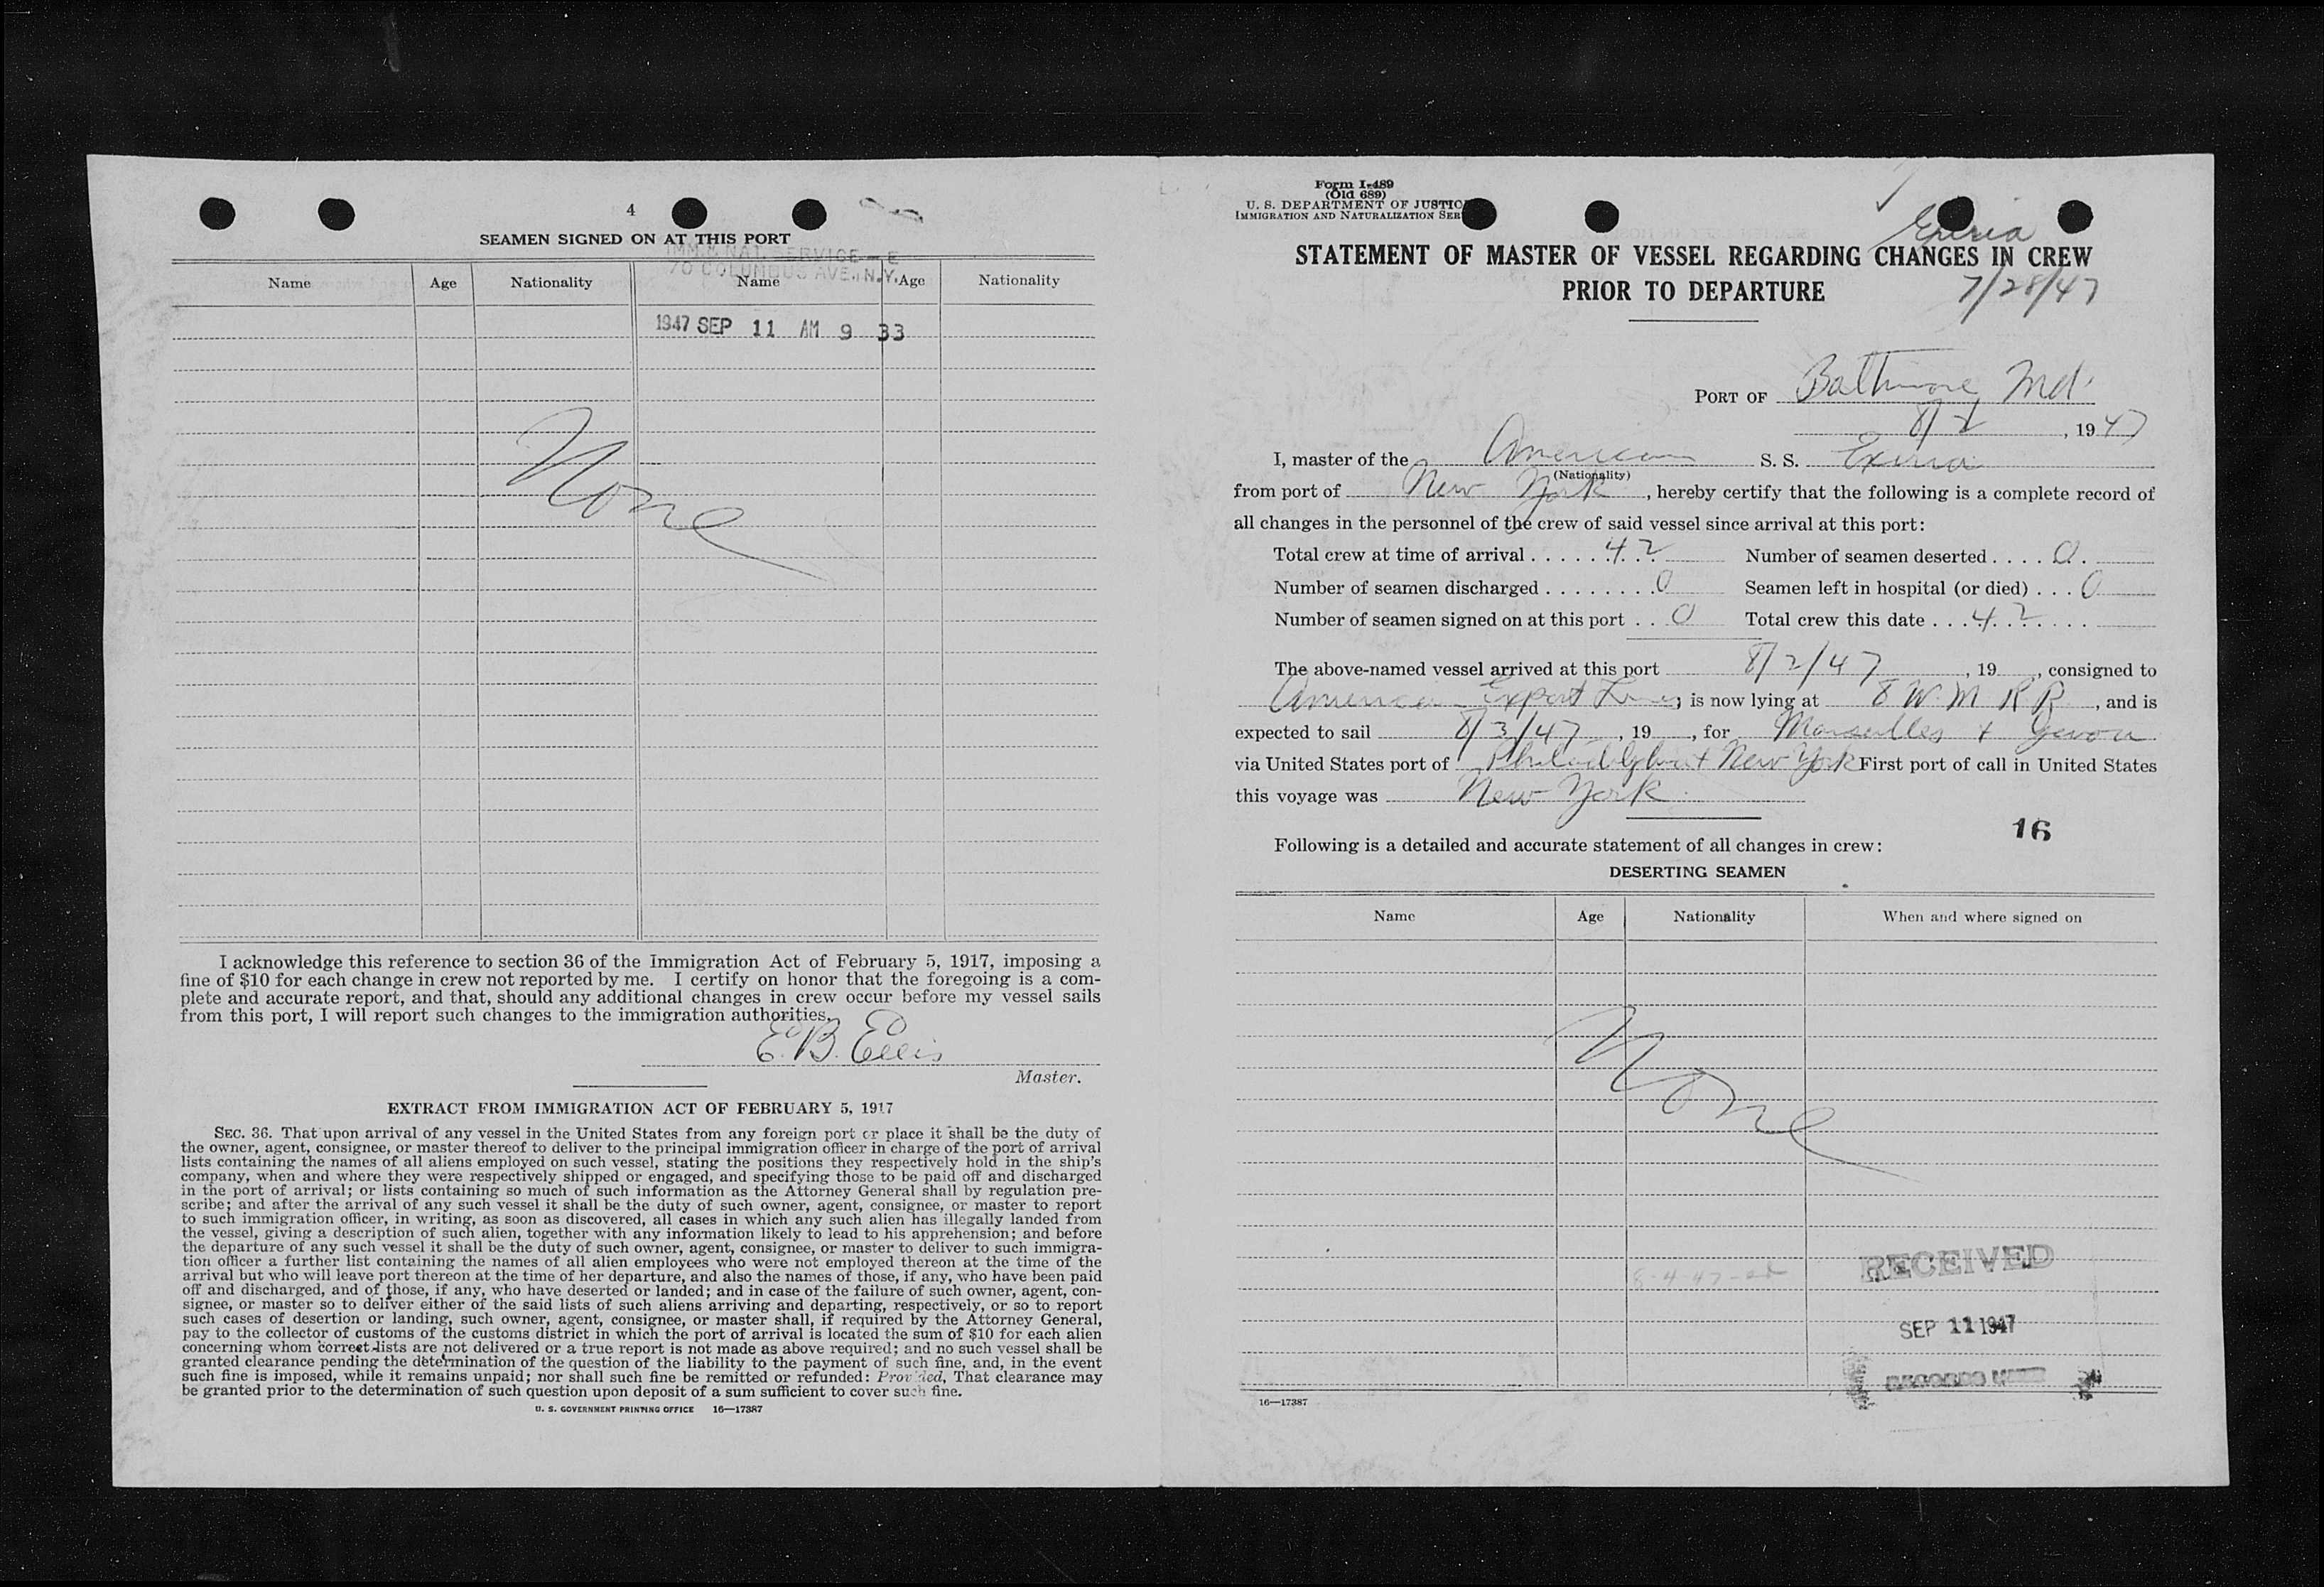 4
SEAMEN SIGNED ON AT THIS PORT
IMM. & NAT. SERVICE — E
70 COLUMBUS AVE., N.Y.
Name Age Nationality Name Age Nationality
1947 SEP 11 AM 9 33
None
I acknowledge this reference to section 36 of the Immigration Act of February 5, 1917, imposing a
fine of $10 for each change in crew not reported by me. I certify on honor that the foregoing is a com-
plete and accurate report, and that, should any additional changes in crew occur before my vessel sails
from this port, I will report such changes to the immigration authorities.
E. B. Ellis
Master.
EXTRACT FROM IMMIGRATION ACT OF FEBRUARY 5, 1917
SEC. 36. That upon arrival of any vessel in the United States from any foreign port or place it shall be the duty of
the owner, agent, consignee, or master thereof to deliver to the principal immigration officer in charge of the port of arrival
lists containing the names of all aliens employed on such vessel, stating the positions they respectively hold in the ship's
company, when and where they were respectively shipped or engaged, and specifying those to be paid off and discharged
in the port of arrival; or lists containing so much of such information as the Attorney General shall by regulation pre-
scribe; and after the arrival of any such vessel it shall be the duty of such owner, agent, consignee, or master to report
to such immigration officer, in writing, as soon as discovered, all cases in which any such alien has illegally landed from
the vessel, giving a description of such alien, together with any information likely to lead to his apprehension; and before
the departure of any such vessel it shall be the duty of such owner, agent, consignee, or master to deliver to such immigra-
tion officer a further list containing the names of all alien employees who were not employed thereon at the time of the
arrival but who will leave port thereon at the time of her departure, and also the names of those, if any, who have been paid
off and discharged, and of those, if any, who have deserted or landed; and in case of the failure of such owner, agent, con-
signee, or master so to deliver either of the said lists of such aliens arriving and departing, respectively, or so to report
such cases of desertion or landing, such owner, agent, consignee, or master shall, if required by the Attorney General,
pay to the collector of customs of the customs district in which the port of arrival is located the sum of $10 for each alien
concerning whom correct lists are not delivered or a true report is not made as above required; and no such vessel shall be
granted clearance pending the determination of the question of the liability to the payment of such fine, and, in the event
such fine is imposed, while it remains unpaid; nor shall such fine be remitted or refunded: Provided, That clearance may
be granted prior to the determination of such question upon deposit of a sum sufficient to cover such fine.
U. S. GOVERNMENT PRINTING OFFICE 16—17387
Form I-489
(Old 689)
U. S. DEPARTMENT OF JUSTIC
IMMIGRATION AND NATURALIZATION SER
STATEMENT OF MASTER OF VESSEL REGARDING CHANGES IN CREW
PRIOR TO DEPARTURE
7/28/47
PORT OF Baltimore Md.
8/2, 1947
I, master of the American S. S. Exiria
(Nationality)
from port of New York, hereby certify that the following is a complete record of
all changes in the personnel of the crew of said vessel since arrival at this port:
Total crew at time of arrival . . . . . . 42 Number of seamen deserted . . . . 0
Number of seamen discharged . . . . . . . . 0 Seamen left in hospital (or died) . . . 0
Number of seamen signed on at this port . . 0 Total crew this date . . . 42 . . . .
The above-named vessel arrived at this port 8/2/47, 19 , consigned to
American Export Lines; is now lying at 8 W. M R R, and is
expected to sail 8/3/47, 19 , for Marseilles + Genoa
via United States port of Philadelphia + New York First port of call in United States
this voyage was New York.
16
Following is a detailed and accurate statement of all changes in crew:
DESERTING SEAMEN
Name Age Nationality When and where signed on
None
RECEIVED
SEP 11 1947
16—17387